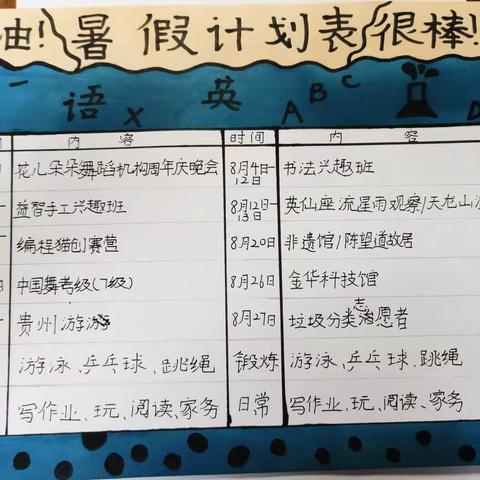 油! 暑假计划表 很棒!
语 X 英 A B C D
内容 时间 内容
花儿朵朵舞蹈机构周年庆晚会 8月4日-12日 书法兴趣班
益智手工兴趣班 8月12日-13日 英仙座流星雨观察/天龙山
编程猫创赛营 8月20日 非遗馆/陈望道故居
中国舞考级(7级) 8月26日 金华科技馆
贵州游 8月27日 垃圾分类志愿者
游泳、乒乓球、跳绳 锻炼 游泳、乒乓球、跳绳
写作业、玩、阅读、家务 日常 写作业、玩、阅读、家务